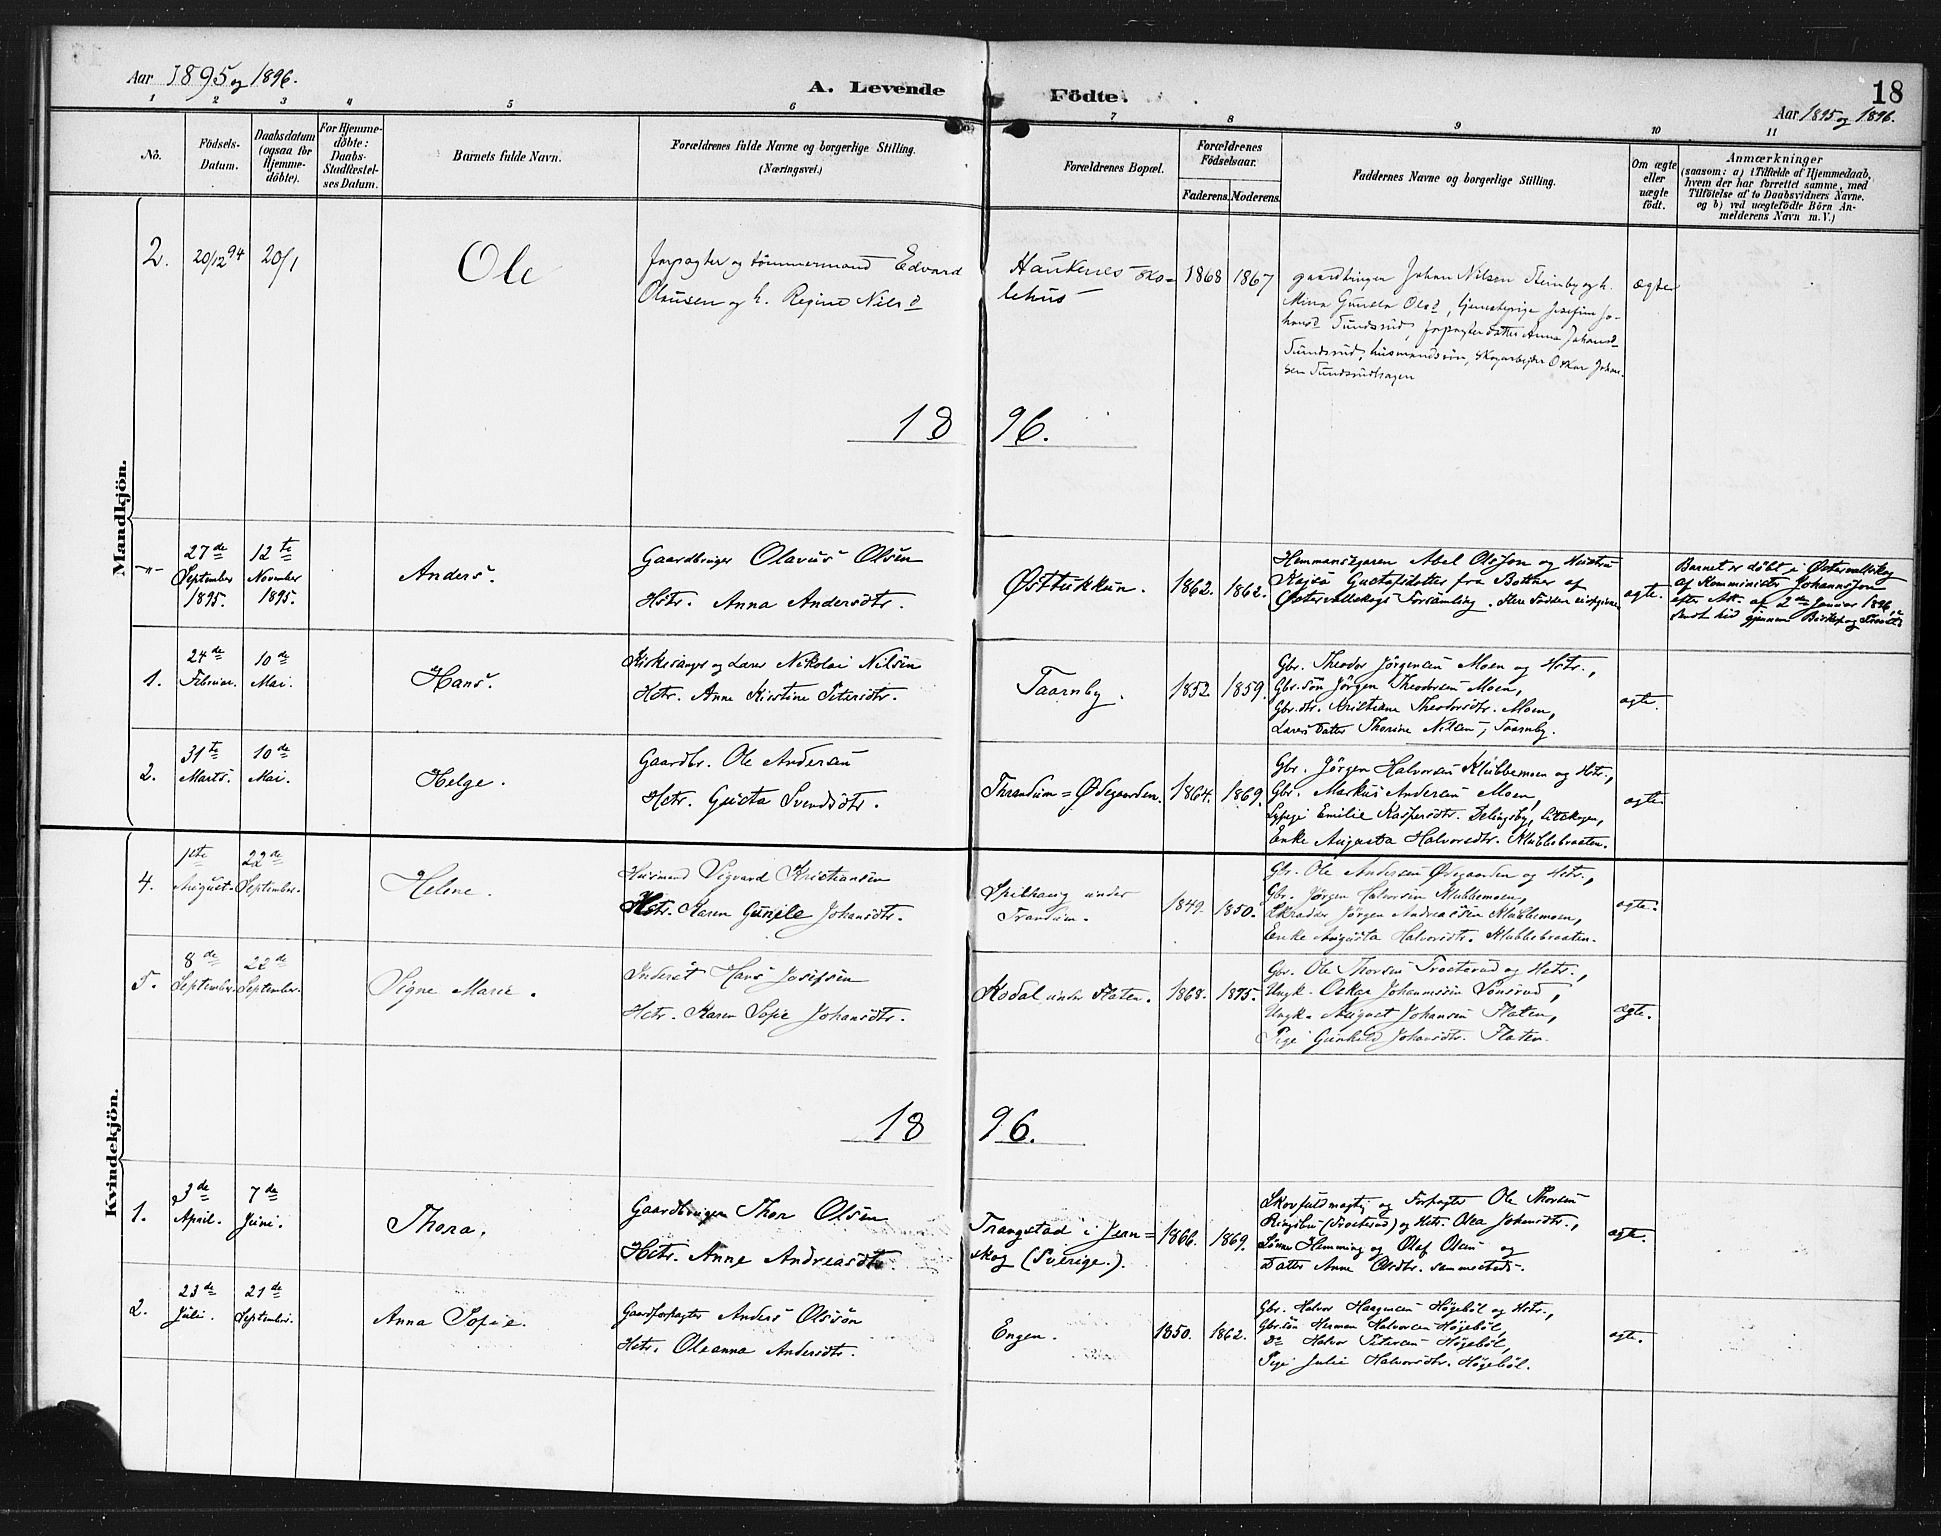 Aar 1895 og 1896.
A. Levende Födte.
18
Aar 1895 og 1896.
1 2 3 4 5 6 7 8 9 10 11
No.
Födsels-
Datum.
Daabsdatum
(ogsaa for
Hjemme-
döbte).
For Hjemme-
döbte:
Daabs-
Stadfæstel-
ses Datum.
Barnets fulde Navn.
Forældrenes fulde Navne og borgerlige Stilling.
(Næringsvei.)
Forældrenes Bopæl.
Forældrenes
Födselsaar.
Faderens. Moderens.
Faddernes Navne og borgerlige Stilling.
Om ægte
eller
uægte
födt.
Anmærkninger
(saasom: a) i Tilfælde af Hjemmedaab,
hvem der har forrettet samme, med
Tilföielse af to Daabsvidners Navne,
og b) ved uægtefödte Börn An-
melderens Navn m. V.)
Mandkjön.
2. 20/12 94 20/1 Ole
forpagter og tömmermand Edvard
Olausen og h. Regine Nilsd
Haukenes sko-
lehus
1868 1867
gaardbruger Johan Nilsen Steinby og h.
Mina Gunda Olsd, tjenestepige Josefine Jo-
hansd Tundsrud, forpagterdatter Anna Johansd
Tundsrud, husmandssön, skogarbejder Oskar Johan-
sen Tundsrudhagen
ægte
1896.
-"- 27de
September
1895.
12te
November
1895.
Anders.
Gaardbruger Olavus Olsen
Hstr. Anna Andersdtr.
Østtukkun. 1862. 1862.
Hemmansegaren Abel Olsson og Hustru
Kajsa Gustafsdotter fra Bottner af
Østervallskogs Forsamling.
ægte.
Barnet er döbt i Østervallskog
af Komminister Johansson
efter Att. af 2de Januar 1896,
sendt hid gjennem Biskop og Provst.
1. 24de
Februar.
10de
Mai.
Hans.
Kirkesanger og Lærer Nikolai Nilsen
Hstr. Anne Kirstine Petersdtr.
Taarnby. 1852. 1859.
Gbr. Theodor Jörgensen Moen og Hstr.,
Gbr. sön Jörgen Theodorsen Moen,
Gbr. dtr. Kristiane Theodorsdtr. Moen,
Lærerdatter Thorine Nilsen, Taarnby.
ægte.
2. 31te
Marts.
10de
Mai.
Helge.
Gaardbr. Ole Andersen
Hstr. Gusta Svendsdtr.
Thrandum = Ødegaarden. 1864. 1869.
Gbr. Jörgen Halvorsen Klubbemoen og Hstr.,
Gbr. Markus Andersen Moen,
Emilie Kaspersdtr.
Enke Augusta Halvorsdtr. Klubbebraaten.
ægte
Kvindekjön.
4. 1ste
August.
22de
September.
Helene.
Husmand Sigvard Kristiansen
Hstr. Karen Gunile Johansdtr.
Spilhaug under
Trandum.
1849. 1850.
Gbr. Ole Andersen Ødegaarden og Hstr.,
Gbr. Jörgen Halvorsen Klubbemoen,
Skrædder Jörgen Andreassen Klubbemoen,
Enke Augusta Halvorsdtr. Klubbebraaten.
ægte.
5. 8de
September.
22de
September.
Signe Marie.
Inderst Hans Josefsen
Hstr. Karen Sofie Johansdtr.
Kodal under Flaten. 1868. 1875.
Gbr. Ole Thorsen Trosterud og Hstr.,
Ungk. Oskar Johannesen Sonsrud,
Ungk. August Johansen Flaten,
Pige Gunhild Johansdtr. Flaten.
ægte.
1896.
1. 3de
April.
7de
Juni.
Thora.
Gaardbruger Thor Olsen
Hstr. Anne Andreasdtr.
Trangstad i Jern=
skog (Sverige.).
1866. 1869.
Skovfuldmægtig og Forpagter Ole Thorsen
Ringsbu (Trosterud) og Hstr. Olea Johansdtr.,
Sönner Hemming og Olaf Olsen og
Datter Anne Olsdtr. sammesteds.
ægte.
2. 23de
Juli.
21de
September.
Anna Sofie.
Gaardforpagter Anders Olsson
Hstr. Oleanna Andersdtr.
Engen. 1850. 1862.
Gbr. Halvor Haagensen Högeböl og Hstr.,
Gbr. sön Herman Halvorsen Högeböl,
Do Halvor Petersen Högeböl,
Pige Julie Halvorsdtr. Högeböl.
ægte.